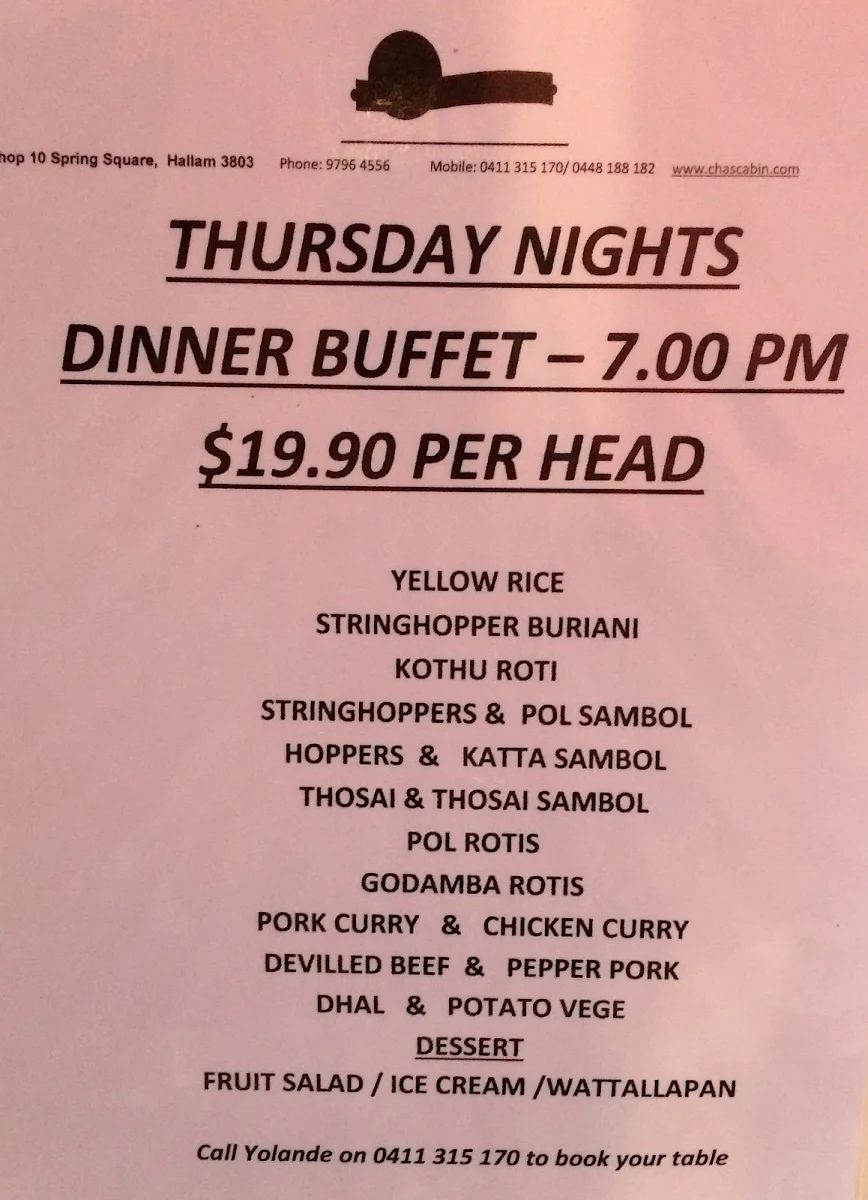 hop 10 Spring Square, Hallam 3803 Phone: 9796 4556 Mobile: 0411 315 170/ 0448 188 182 www.chascabin.com
THURSDAY NIGHTS
DINNER BUFFET – 7.00 PM
$19.90 PER HEAD
YELLOW RICE
STRINGHOPPER BURIANI
KOTHU ROTI
STRINGHOPPERS & POL SAMBOL
HOPPERS & KATTA SAMBOL
THOSAI & THOSAI SAMBOL
POL ROTIS
GODAMBA ROTIS
PORK CURRY & CHICKEN CURRY
DEVILLED BEEF & PEPPER PORK
DHAL & POTATO VEGE
DESSERT
FRUIT SALAD / ICE CREAM /WATTALLAPAN
Call Yolande on 0411 315 170 to book your table